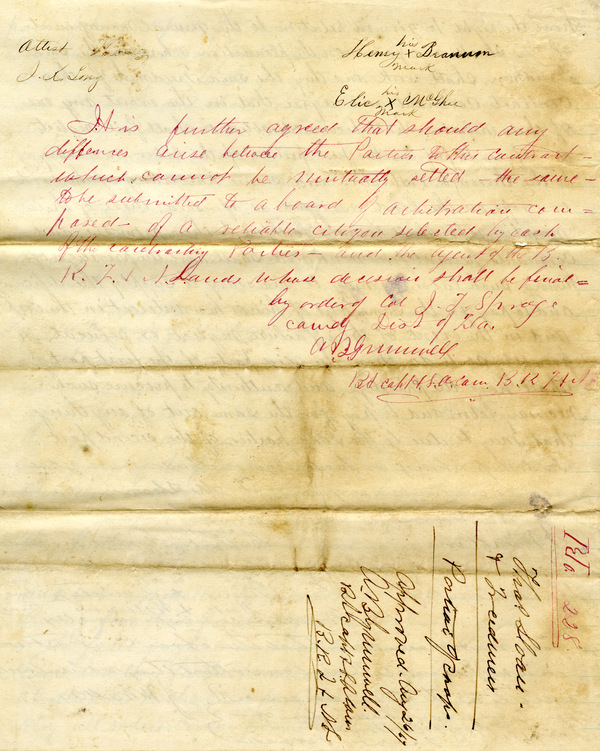 Attest
J. X. Long
his
Henry X Brannum
mark
his
Elic X McGhee
mark
It is further agreed that should any
differences arise betwee the Parties to this contract -
which cannot be mutually setled - the same -
to be submitted to a board of arbitration com=
posed - of a reliable citizen selected by each
of the contracting Parties - and the agent of the B.
R. F. & A. Lands whose decision shall be final =
by order of Col J. T. Sprage
comdg Dist of Fla.
A B Grumwell
Bt capt U.S.A. Com. B. R. F. & A.
228
Thos. Sloan -
& Freedmen
Portion of Crops.
Approved Aug 26/67
A B Grumwell
Bt Capt
B. R. F. & A L